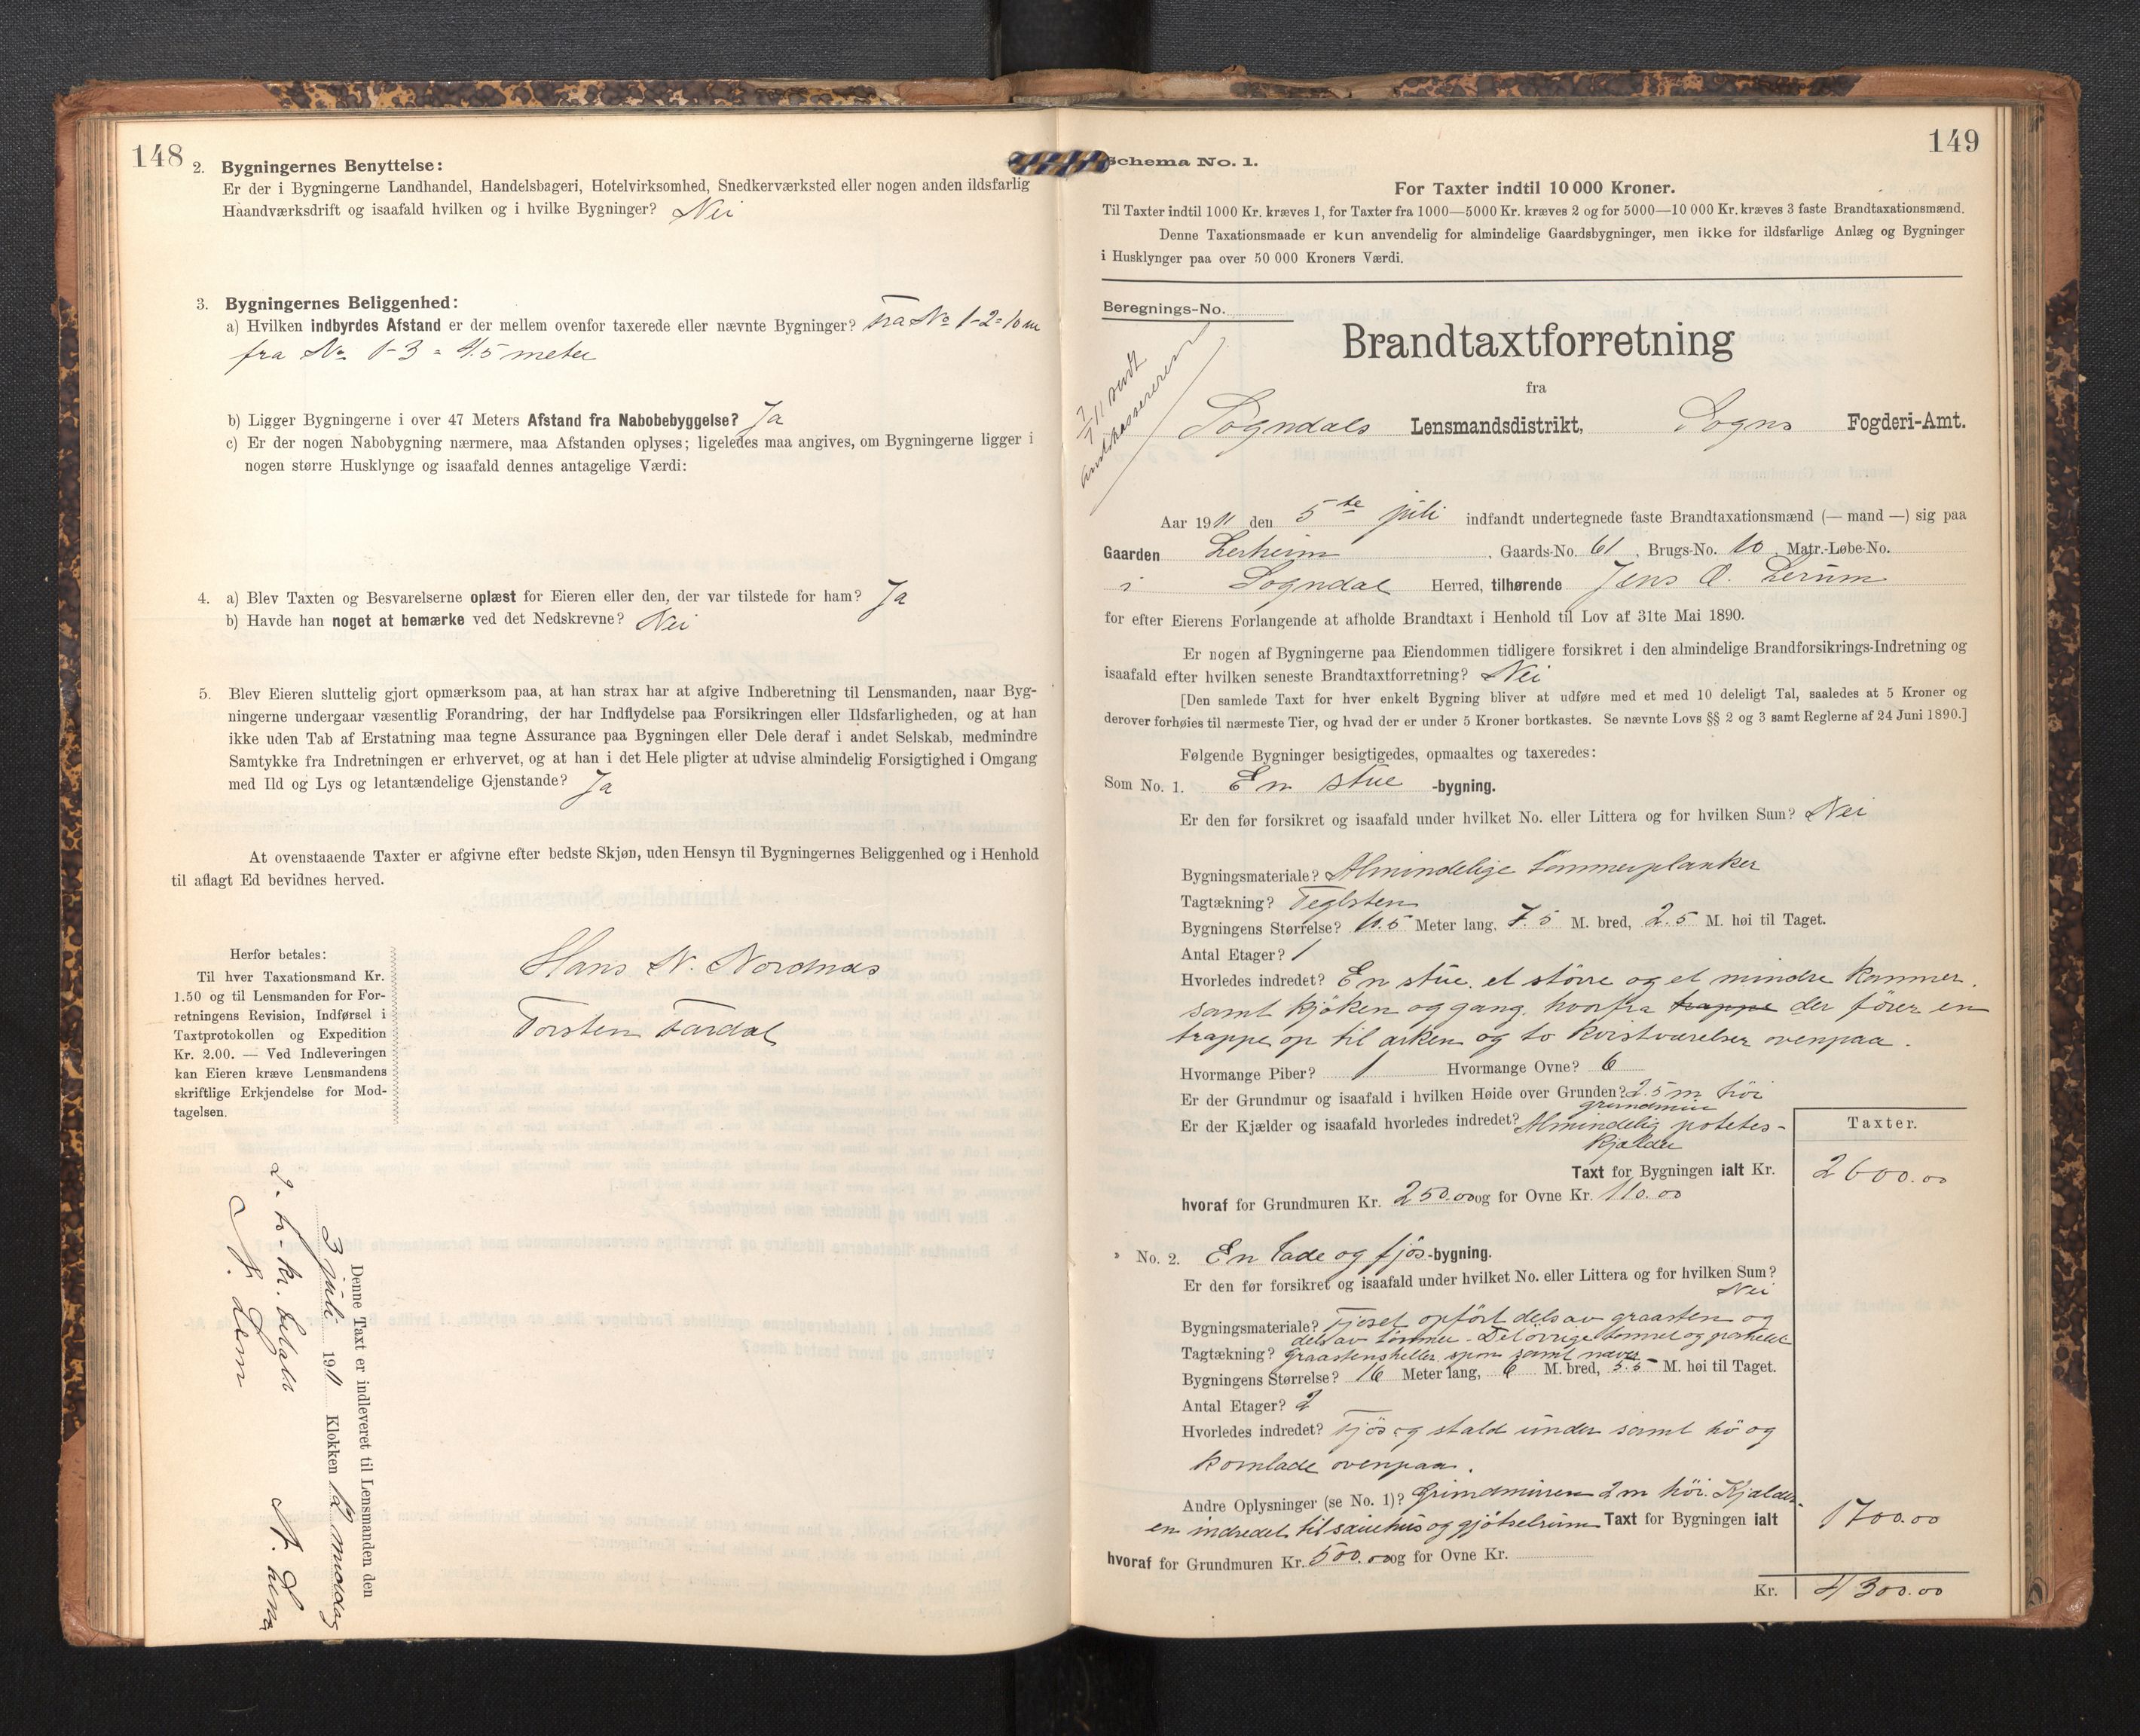 148
2. Bygningernes Benyttelse:
Er der i Bygningerne Landhandel, Handelsbageri, Hotelvirksomhed, Snedkerværksted eller nogen anden ildsfarlig
Haandværksdrift og isaafald hvilken og i hvilke Bygninger? Nei
3. Bygningernes Beliggenhed:
a) Hvilken indbyrdes Afstand er der mellem ovenfor taxerede eller nævnte Bygninger? Fra No 1-2=10m
fra No 1-3 = 45 meter
b) Ligger Bygningerne i over 47 Meters Afstand fra Nabobebyggelse? Ja
c) Er der nogen Nabobygning nærmere, maa Afstanden oplyses; ligeledes maa angives, om Bygningerne ligger i
nogen større Husklynge og isaafald dennes antagelige Værdi:
4. a) Blev Taxten og Besvarelserne oplæst for Eieren eller den, der var tilstede for ham? Ja
b) Havde han noget at bemærke ved det Nedskrevne? Nei
5. Blev Eieren sluttelig gjort opmærksom paa, at han strax har at afgive Indberetning til Lensmanden, naar Byg-
ningerne undergaar væsentlig Forandring, der har Indflydelse paa Forsikringen eller Ildsfarligheden, og at han
ikke uden Tab af Erstatning maa tegne Assurance paa Bygningen eller Dele deraf i andet Selskab, medmindre
Samtykke fra Indretningen er erhvervet, og at han i det Hele pligter at udvise almindelig Forsigtighed i Omgang
med Ild og Lys og letantændelige Gjenstande? Ja
At ovenstaaende Taxter er afgivne efter bedste Skjøn, uden Hensyn til Bygningernes Beliggenhed og i Henhold
til aflagt Ed bevidnes herved.
Herfor betales:
Til hver Taxationsmand Kr.
1.50 og til Lensmanden for For-
retningens Revision, Indførsel i
Taxtprotokollen og Expedition
Kr. 2.00. — Ved Indleveringen
kan Eieren kræve Lensmandens
skriftlige Erkjendelse for Mod-
tagelsen.
Hans N. Nordnæs
Torsten Fardal
Denne Taxt er indleveret til Lensmanden den
3 juli 1911 Klokken 12 middag
2 - to - kr. betalt
149
Schema No. 1.
For Taxter indtil 10 000 Kroner.
Til Taxter indtil 1000 Kr. kræves 1, for Taxter fra 1000—5000 Kr. kræves 2 og for 5000—10 000 Kr. kræves 3 faste Brandtaxationsmænd.
Denne Taxationsmaade er kun anvendelig for almindelige Gaardsbygninger, men ikke for ildsfarlige Anlæg og Bygninger
i Husklynger paa over 50 000 Kroners Værdi.
Beregnings-No.
7/11 sendt
amtkassereren
Brandtaxtforretning
fra
Sogndals Lensmandsdistrikt, Sogns Fogderi-Amt.
Aar 1911 den 5te juli indfandt undertegnede faste Brandtaxationsmænd (— mand —) sig paa
Gaarden Lerheim, Gaards-No. 61, Brugs-No. 10, Matr.-Løbe-No.
i Sogndal Herred, tilhørende Jens O. Lerum
for efter Eierens Forlangende at afholde Brandtaxt i Henhold til Lov af 31te Mai 1890.
Er nogen af Bygningerne paa Eiendommen tidligere forsikret i den almindelige Brandforsikrings-Indretning og
isaafald efter hvilken seneste Brandtaxtforretning? Nei
[Den samlede Taxt for hver enkelt Bygning bliver at udføre med et med 10 deleligt Tal, saaledes at 5 Kroner og
derover forhøies til nærmeste Tier, og hvad der er under 5 Kroner bortkastes. Se nævnte Lovs §§ 2 og 3 samt Reglerne af 24 Juni 1890.]
Følgende Bygninger besigtigedes, opmaaltes og taxeredes:
Som No. 1. En stue -bygning.
Er den før forsikret og isaafald under hvilket No. eller Littera og for hvilken Sum? Nei
Bygningsmateriale? Almindelige tømmerplanker
Tagtækning? Teglsten
Bygningens Størrelse? 10.5 Meter lang, 7.5 M. bred, 2.5 M. høi til Taget.
Antal Etager? 1
Hvorledes indredet? En stue, et större og et mindre kammer,
samt kjöken og gang, hvorfra trappe der förer en
trappe op til arken og to kvistværelser ovenpaa.
Hvormange Piber? 1 Hvormange Ovne? 6
Er der Grundmur og isaafald i hvilken Høide over Grunden? 2.5 m höi
grundmur
Er der Kjælder og isaafald hvorledes indredet? Almindelig potetes-
kjælder
Taxter.
Taxt for Bygningen ialt Kr. 2600.00
hvoraf for Grundmuren Kr. 250.00 og for Ovne Kr. 110.00
" No. 2. En lade og fjös -bygning.
Er den før forsikret og isaafald under hvilket No. eller Littera og for hvilken Sum?
Nei
Bygningsmateriale? Fjöset opfört dels av graasten og
dels av tömmer. Det övrige tømmer og
Tagtækning? Graastensheller, spon samt næver
Bygningens Størrelse? 16 Meter lang, 6 M. bred, 5.5 M. høi til Taget.
Antal Etager? 2
Hvorledes indredet? Fjös og stald under samt hö og
kornlade ovenpaa.
Andre Oplysninger (se No. 1)? Grundmuren 2 m höi. Kjælder-
en indredet til sauehus og gjödselrum Taxt for Bygningen ialt 1700.00
hvoraf for Grundmuren Kr. 500.00 og for Ovne Kr.
Kr. 4300.00